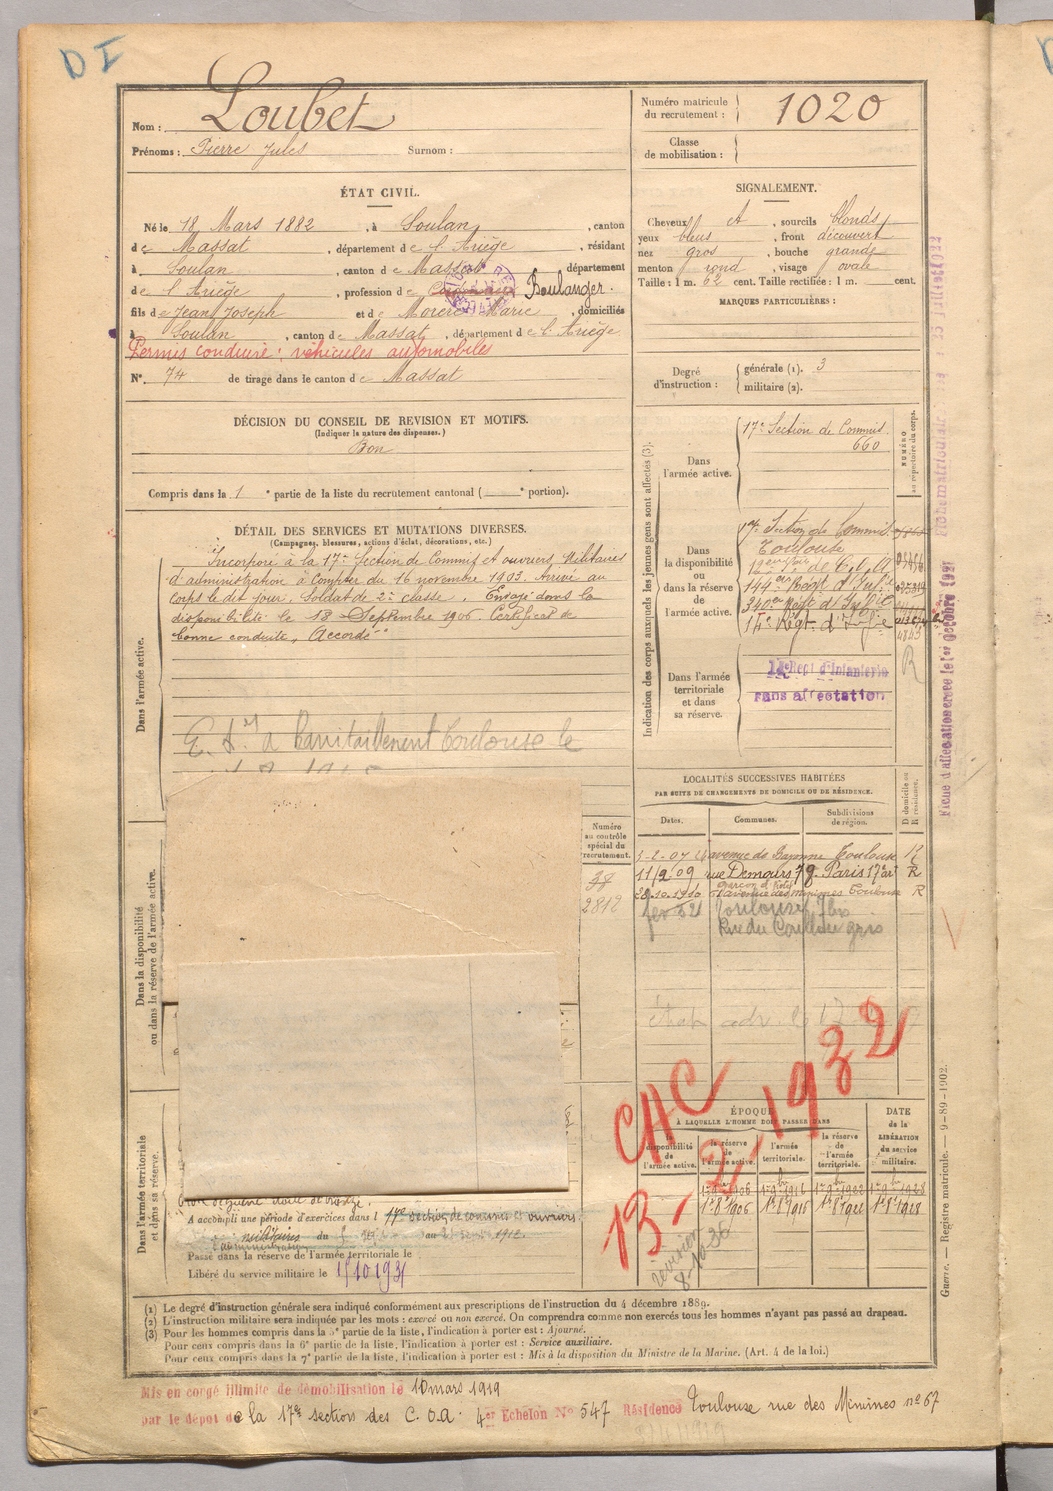 D I
Nom : Loubet
Prénoms : Pierre Jules Surnom :
ÉTAT CIVIL.
Né le 18 Mars 1882, à Soulan, canton
de Massat, département de l'Ariège, résidant
à Soulan, canton de Massat département
de l'Ariège, profession de Boulanger.
fils de Jean Joseph et de Marie, domiciliés
à Soulan, canton de Massat, département de l'Ariège
Permis conduire : véhicules automobiles
N° 74 de tirage dans le canton de Massat
DÉCISION DU CONSEIL DE REVISION ET MOTIFS.
(Indiquer la nature des dispenses.)
Bon
Compris dans la 1e partie de la liste du recrutement cantonal ( e portion).
DÉTAIL DES SERVICES ET MUTATIONS DIVERSES.
(Campagnes, blessures, actions d'éclat, décorations, etc.)
Incorporé à la 17e Section de Commis et ouvriers Militaires
d'administration à compter du 16 novembre 1903. Arrivé au
corps le dit jour, Soldat de 2e classe. Envoyé dans la
disponibilité le 18 Septembre 1906. Certificat de
bonne conduite, Accordé
Toulouse le
Dans l'armée active.
Dans la disponibilité
ou dans la réserve de l'armée active.
Dans l'armée territoriale
et dans sa réserve.
Numéro
au contrôle
spécial du
recrutement.
38
2812
A accompli une période d'exercices dans l 17e section de commis et ouvriers
militaires du au 1912
d'administration
Passé dans la réserve de l'armée territoriale le
Libéré du service militaire le
Numéro matricule
du recrutement : 1020
Classe
de mobilisation :
SIGNALEMENT.
Cheveux et, sourcils blonds
yeux bleus, front découvert
nez gros, bouche grande
menton rond, visage ovale
Taille : 1 m. 62 cent. Taille rectifiée : 1 m. cent.
MARQUES PARTICULIÈRES :
Degré
d'instruction :
générale (1). 3
militaire (2).
Indication des corps auxquels les jeunes gens sont affectés (3).
NUMÉRO
au répertoire du corps.
Dans
l'armée active.
17e Section de Commis.
660
Dans
la disponibilité
ou
dans la réserve
de
l'armée active.
17e Section de Commis.
Toulouse
144e Régt d'Infie
340e Régt d'Infie
14e Régt d'Infie
4843
R
Dans l'armée
territoriale
et dans
sa réserve.
14e Régt d'Infanterie
sans affectation.
LOCALITÉS SUCCESSIVES HABITÉES
PAR SUITE DE CHANGEMENTS DE DOMICILE OU DE RÉSIDENCE.
D domicile ou
R résidence.
Dates. Communes. Subdivisions
de région.
3-2-07 24 avenue de Bayonne Toulouse R
11/2 09 rue Demours 78 Paris 17e ar R
28.10.1910 avenue des minimes Toulouse R
fev 32 Toulouse 7 bis
Rue du
CHC
13-2-1932
ÉPOQUE
À LAQUELLE L'HOMME DOIT PASSER DANS
DATE
de la
LIBÉRATION
du service
militaire.
la
disponibilité
de
l'armée active.
la réserve
de
l'armée active.
l'armée
territoriale.
la réserve
de
l'armée
territoriale.
révision
8-10-36
Guerre. — Registre matricule. — 9-89-1902.
Fiche d'affectation créée le 1er octobre 1921
(1) Le degré d'instruction générale sera indiqué conformément aux prescriptions de l'instruction du 4 décembre 1889.
(2) L'instruction militaire sera indiquée par les mots : exercé ou non exercé. On comprendra comme non exercés tous les hommes n'ayant pas passé au drapeau.
(3) Pour les hommes compris dans la 5e partie de la liste, l'indication à porter est : Ajourné.
Pour ceux compris dans la 6e partie de la liste, l'indication à porter est : Service auxiliaire.
Pour ceux compris dans la 7e partie de la liste, l'indication à porter est : Mis à la disposition du Ministre de la Marine. (Art. 4 de la loi.)
Mis en congé illimité de démobilisation le 10 mars 1919
par le dépôt de la 17e section des C.O.A. 4er Echelon N° 547 Résidence Toulouse rue des Minimes n° 67